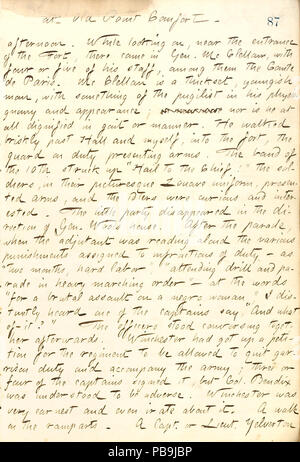 at Old Point Comfort —
87
afternoon. While looking on, near the entrance
of the Fort, there came in Gen. McClellan, with
four or five of his staff, among them the Comte
de Paris. McClellan is a thickset, youngish
man, with something of the pugilist in his physiog
nomy and appearance; nor is he at
all dignified in gait or manner. He walked
briskly past Hall and myself, into the fort, the
guard on duty presenting arms. The band of
the 10th struck up "Hail to the Chief," the sol-
diers, in their picturesque Zouave uniform, presen-
ted arms, and the others were curious and inter-
ested. The little party disappeared in the di-
rection of Gen. Wool's house. After the parade,
when the adjutant was reading aloud the various
punishments assigned to infractions of duty — as
"two months, hard labor" "attending drill and pa-
rade in heavy marching order — at the words
"for a brutal assault on a negro woman," I dis-
tinctly heard one of the captains say "And what
of it?" The officers stood canvassing toget-
her afterwards. Winchester had got up a peti-
tion for the regiment to be allowed to quit gar-
rison duty and accompany the army; three or
four of the captains signed it, but Col. Bendix
was understood to be adverse. Winchester was
very earnest and even irate about it. A walk
on the ramparts. A Capt. or Lieut. Yelverton
alamy
PB9JBP